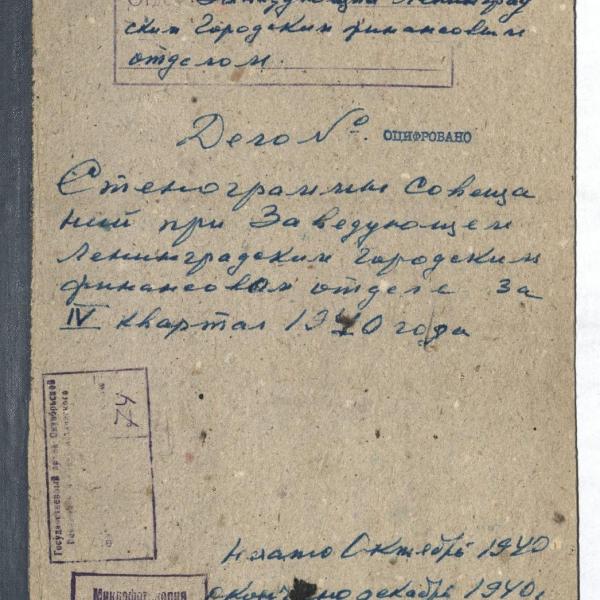 Заведующий Ленинград
ским Городским финансовым
отделом.
Дело №.
ОЦИФРОВАНО
Стенограммы совеща
ний при Заведующем
Ленинградским Городским
финансовом отделе за
IV квартал 1940 года
Государственный архив Октябрьской
Начато Октябрь 1940
Окончено декабрь 1940г
Микрофотокопия